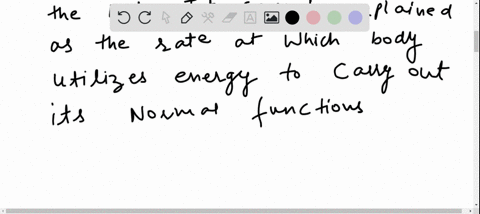 the plained
as the rate at which body
utilizes energy to carry out
its Normal functions